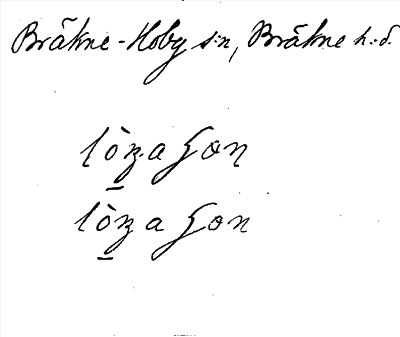 Bräkne-Hoby s:n, Bräkne h.d.
lò̱ʒa ʛon
lò̱ʒa ʛon